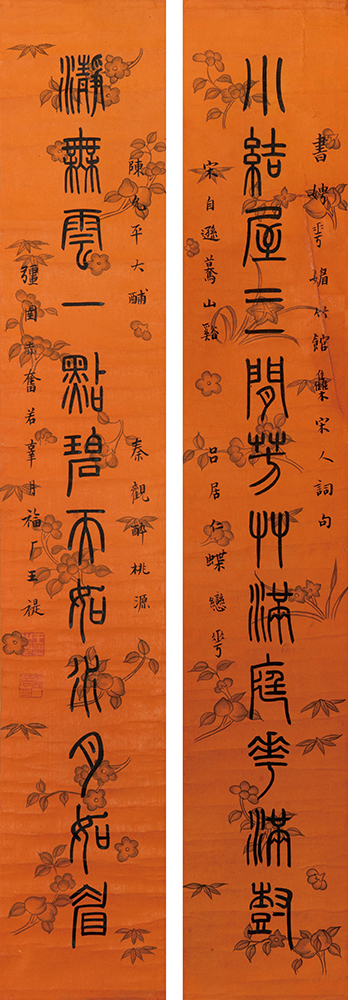 書娉華媚竹館集宋人詞句
小結屋三間芳艸滿庭華滿樹
宋自遜驀山谿
呂居仁蝶戀華
陳允平大酺
秦觀醉桃源
瀞無雲一點碧天如水月如眉
彊圉赤奮若辜月福厂王禔